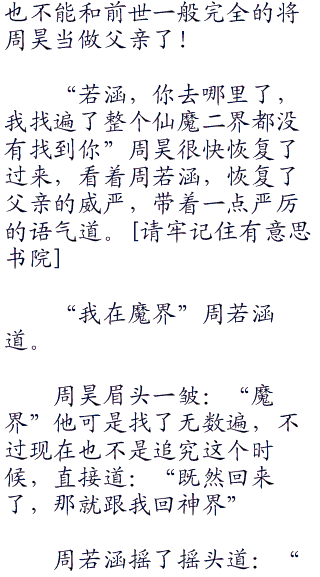 也不能和前世一般完全的将
周昊当做父亲了！
“若涵，你去哪里了，
我找遍了整个仙魔二界都没
有找到你”周昊很快恢复了
过来，看着周若涵，恢复了
父亲的威严，带着一点严厉
的语气道。[请牢记住有意思
书院]
“我在魔界”周若涵
道。
周昊眉头一皱：“魔
界”他可是找了无数遍，不
过现在也不是追究这个时
候，直接道：“既然回来
了，那就跟我回神界”
周若涵摇了摇头道：“